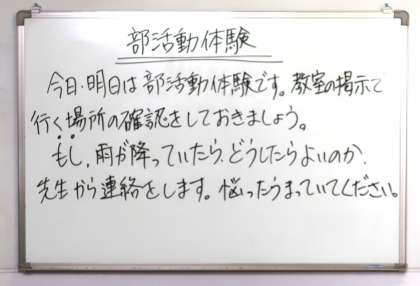 部活動体験
今日・明日は部活動体験です。教室の掲示で
行く場所の確認をしておきましょう。
もし、雨が降っていたら、どうしたらよいのか、
先生から連絡をします。悩ったらまっていてください。